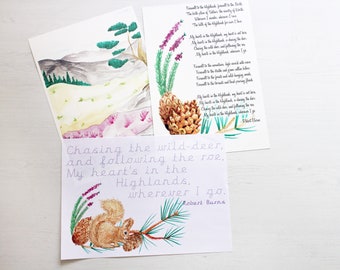 Farewell to the Highlands, farewell to the North,
The birth-place of Valour, the country of Worth;
Wherever I wander, wherever I rove,
My heart's in the Highlands, my heart is not here,
My heart's in the Highlands, a-chasing the deer;
Chasing the wild-deer, and following the roe,
My heart's in the Highlands, wherever I go.
Farewell to the mountains, high-cover'd with snow,
Farewell to the straths and green vallies below;
Farewell to the forests and wild-hanging woods,
Farewell to the torrents and loud-pouring floods.
My heart's in the Highlands, my heart is not here,
My heart's in the Highlands, a-chasing the deer;
Chasing the wild-deer, and following the roe,
My heart's in the Highlands, wherever I go.
Robert Burns
Chasing the wild-deer,
and following the roe,
My heart's in the
Highlands,
wherever I go.
Robert Burns